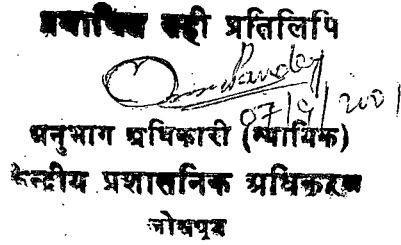 प्रमाणित सही प्रतिलिपि
07/9/2001
अनुभाग अधिकारी (न्यायिक)
केन्द्रीय प्रशासनिक अधिकरण
जोधपुर